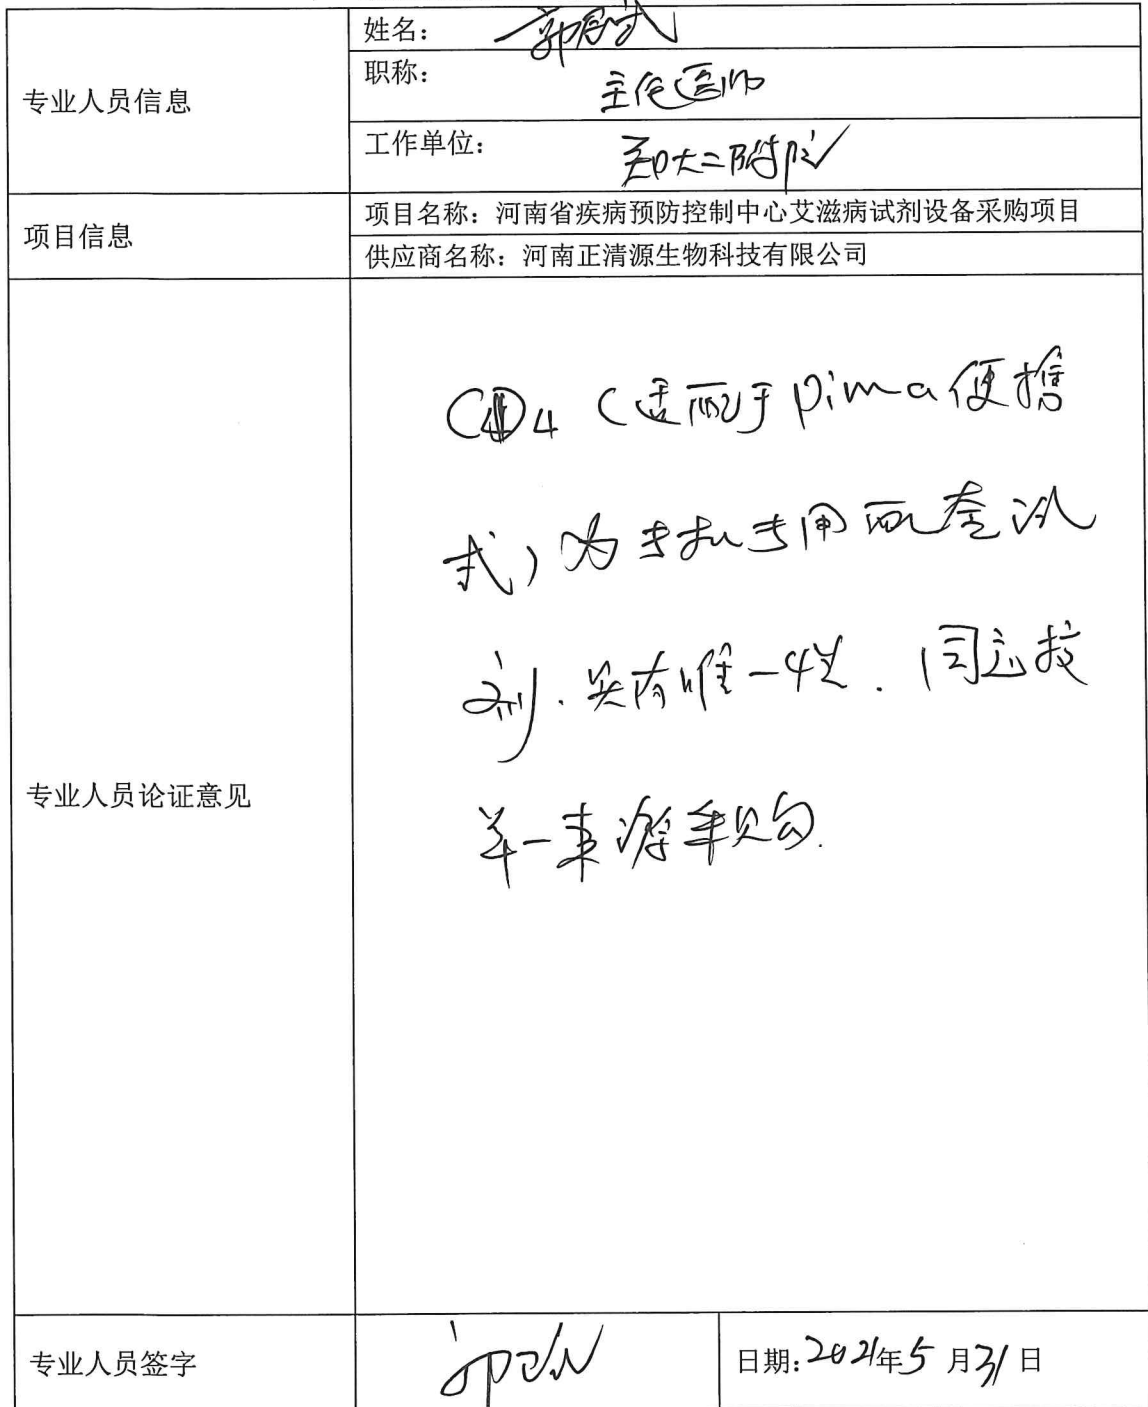 专业人员信息
姓名：
职称：主任医师
工作单位：郑大二附院
项目信息
项目名称：河南省疾病预防控制中心艾滋病试剂设备采购项目
供应商名称：河南正清源生物科技有限公司
专业人员论证意见
CD4（适配于pima便携
式）为专机专用配套试
剂．具有唯一性．同意按
单一来源采购．
专业人员签字
日期：2021年5月31日